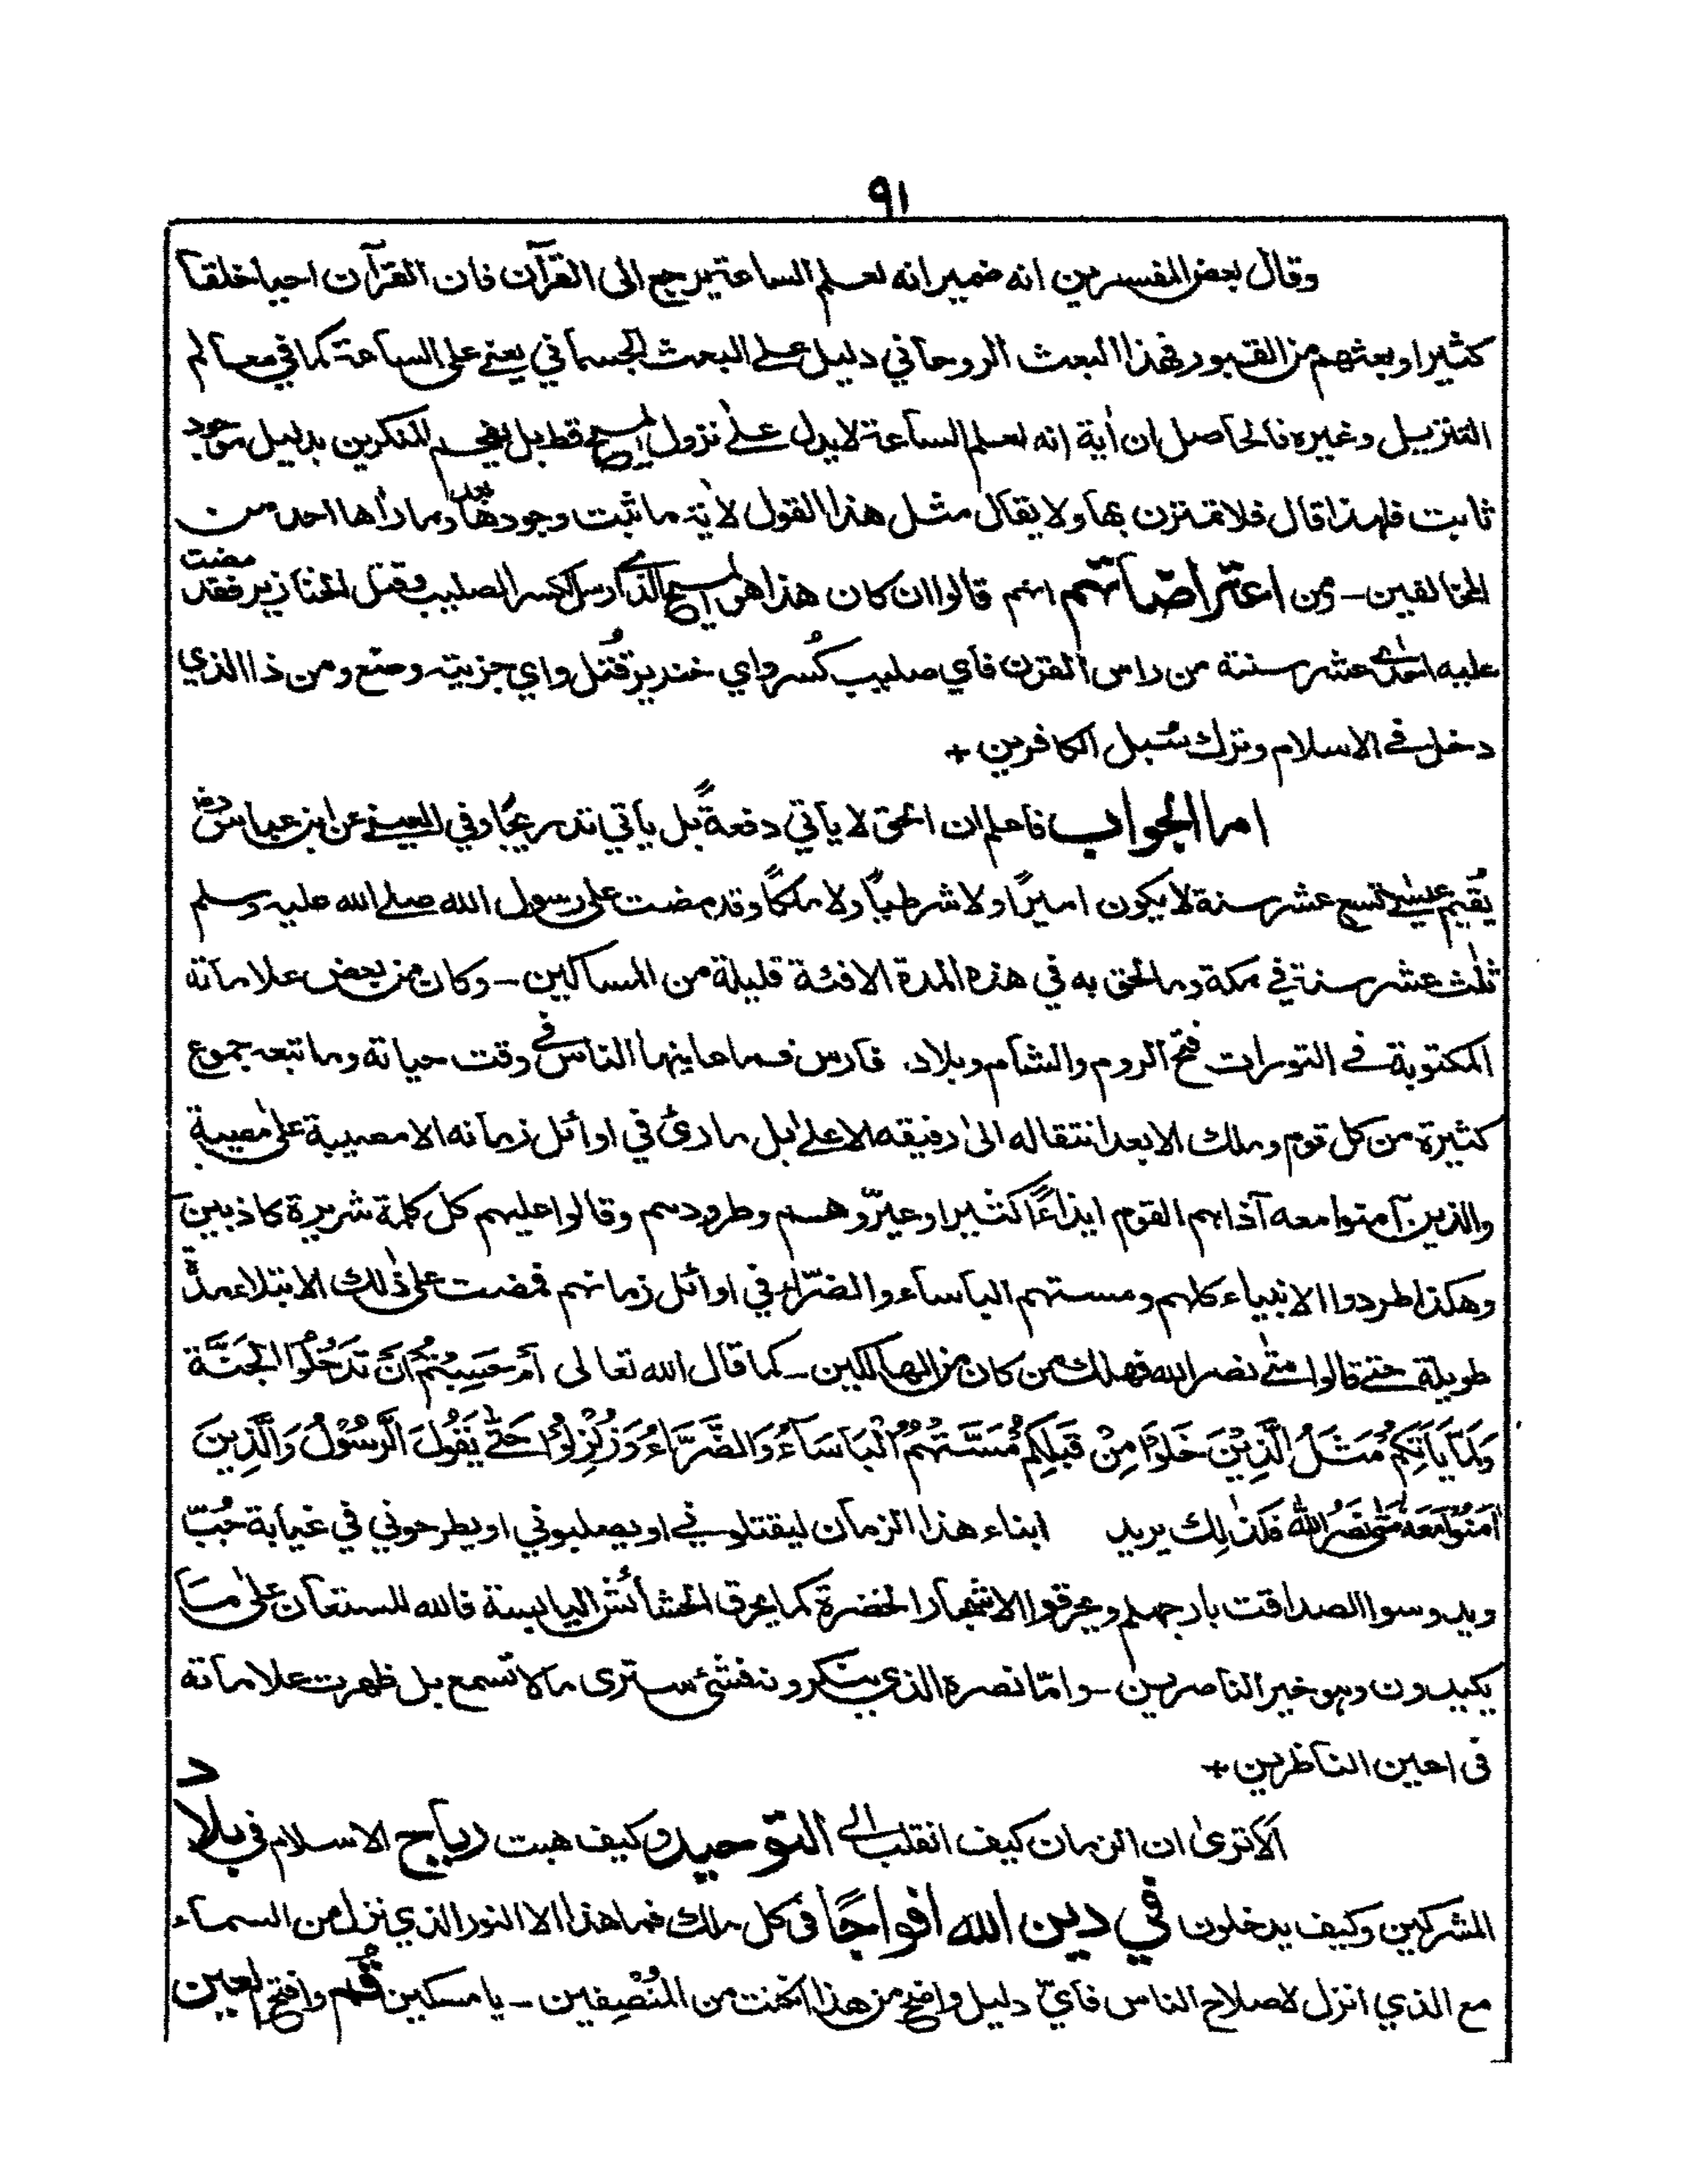 ٩١
وقال بعض المفسرين انه ضمير انه لعلم الساعة يرجع الى القرآن فان القرآن احيا خلقاً
كثيرا وبعثهم من القبور فهذا البعث الروحاني دليل على البعث الجسماني يعني على الساعة كما في معالم
التنزيل وغيره فالحاصل ان أية إنه لعلم الساعة لا يدل على نزول المسيح قط بل يفحم المنكرين بدليل موجود
ثابت فلهذا قال فلا تمترن بها ولا يقال مثل هذا القول لأية ما ثبت وجودها بعد وما راٰها احد من
المخالفين – ومن اعتراضاتهم انهم قالوا ان كان هذا هو المسيح الذي ارسل لكسر الصليب وقتل الخنازير فقد مضت
عليه احدى عشر سنة من راس القرن فاي صليب كُسر واي خنزير قُتل واي جزية وضع ومن ذا الذي
دخل في الاسلام وترك سُبل الكافرين +
اما الجواب فاعلم ان الحق لا يأتي دفعةً بل يأتي تدريجًا وفي العيني عن ابن عباس رض
يُقيم عيسىٰ تسع عشر سنة لا يكون اميرًا ولا شرطيًا ولا ملكًا وقد مضت على رسول الله صلى الله عليه وسلم
ثلٰث عشر سنة في مكة وما لحق به في هذه المدة الا فئة قليلة من المساكين – وكان من بعض علاماته
المكتوبة في التورات فتح الروم والشام وبلاد فارس فما عاينها الناس في وقت حياته وما تبعه جموع
كثيرة من كل قوم وملك الا بعد انتقاله الىٰ رفيقه الاعلى بل ما رئ في اوائل زمانه الا مصيبة علىٰ مصيبة
والذين آمنوا معه آذاهم القوم ايذاءً كثيرا وعيّروهم وطردوهم وقالوا عليهم كل كلمة شريرة كاذبين
وهكذا طردوا الانبياء كلهم ومستهم البأساء والضرّاء في اوائل زمانهم فمضت على ذٰلك الابتلاء مدّة
طويلة حتى قالوا متىٰ نصر الله فهلك من كان من الهالكين – كما قال الله تعالى أَمْ حَسِبْتُمْ اَنْ تَدْخُلُوْا الْجَنَّةَ
وَلَمَّا يَأْتِكُمْ مَثَلُ الَّذِيْنَ خَلَوْا مِنْ قَبْلِكُمْ مَسَّتْهُمُ الْبَأْسَآءُ وَالضَّرَّاءُ وَزُلْزِلُوْا حَتّٰى يَقُوْلَ الرَّسُوْلُ وَالَّذِيْنَ
اٰمَنُوْا مَعَهُ مَتٰى نَصْرُ اللّٰهِ فكذٰلك يريد ابناء هذا الزمان ليقتلوني او يصلبوني او يطرحوني في غيابة جُبّ
ويدوسوا الصداقت بارجلهم ويحرقوا الاشجار الخضرة كما يحرق الحشائش اليابسة فالله المستعان على ما
يكيدون وهو خير الناصرين – وامّا نصره الذي ينكرونه فشئ سترى ما لا تسمع بل ظهرت علاماته
في اعين الناظرين +
ألا ترىٰ ان الزمان كيف انقلب الى التوحيد وكيف هبت رياح الاسلام في بلاد
المشركين وكيف يدخلون في دين الله افواجًا في كل ملك فما هذا الا النور الذي نزل من السمآء
مع الذي انزل لاصلاح الناس فأيّ دليل واضح من هذا ان كنت من المُنْصِفين – يا مسكين قُم وافتح العين